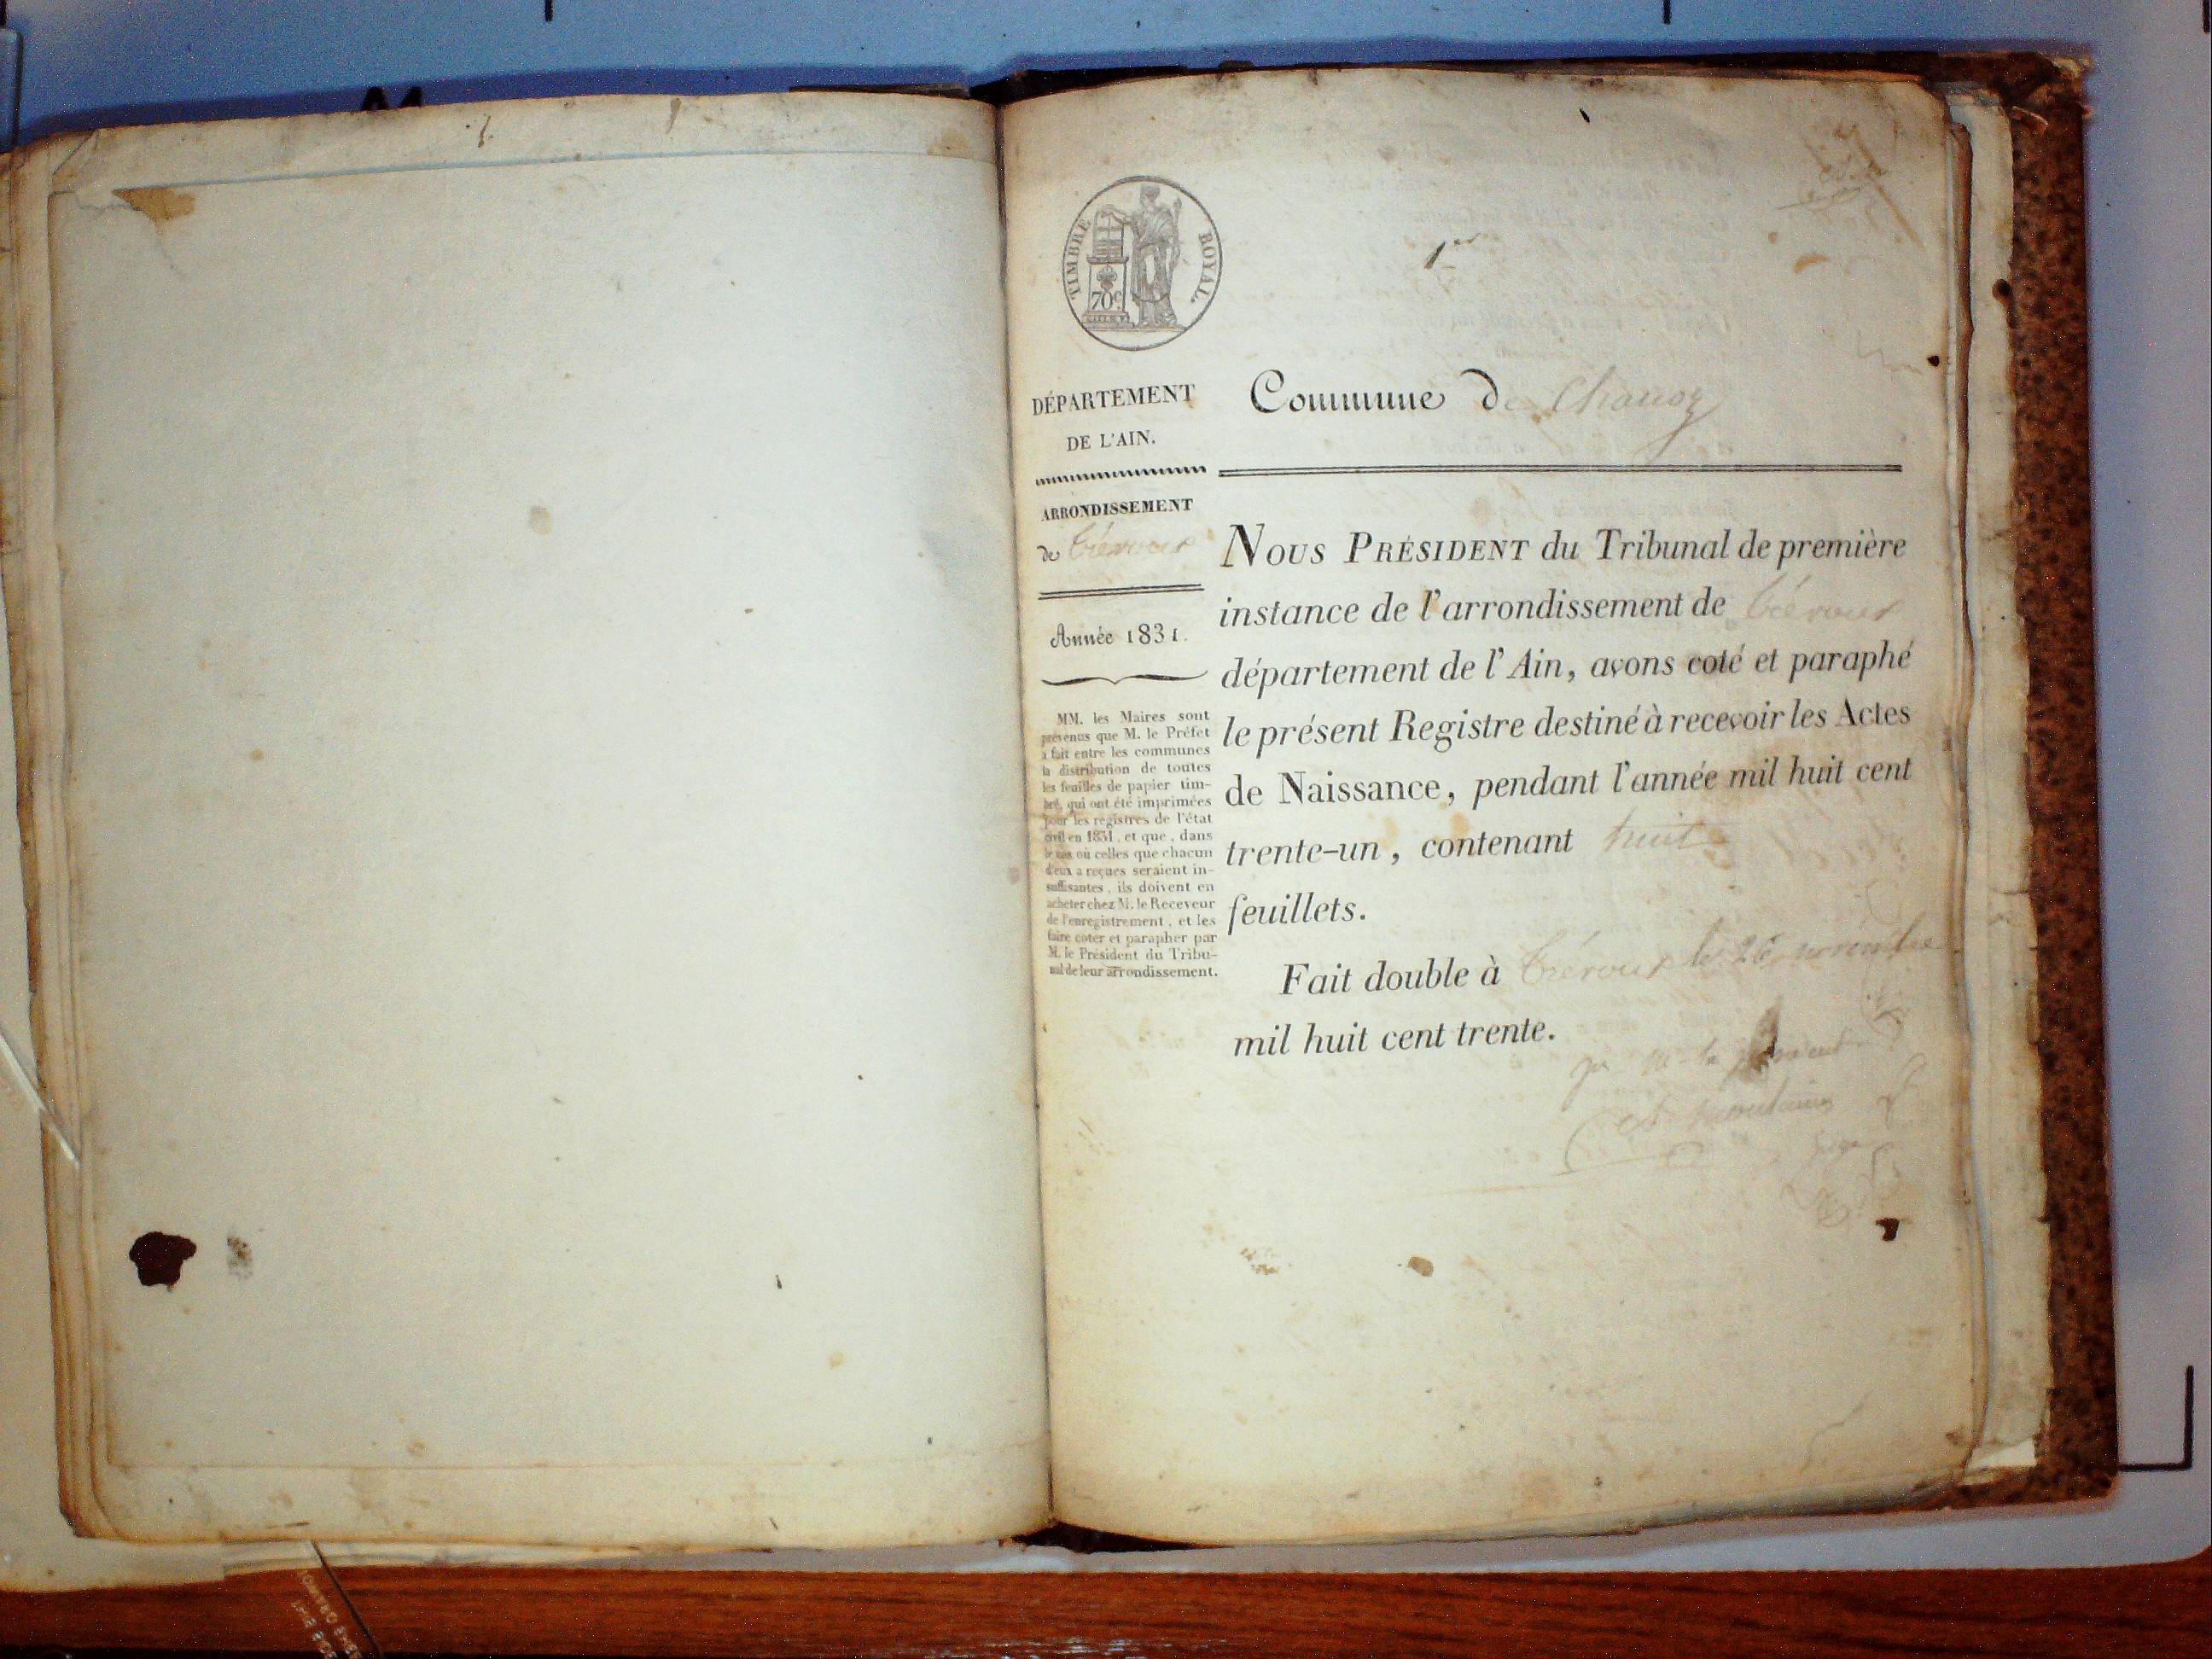 TIMBRE ROYAL.
70c
1er
DÉPARTEMENT
DE L'AIN.
Commune de
ARRONDISSEMENT
de Trévoux
Année 1831.
MM. les Maires sont
prévenus que M. le Préfet
a fait entre les communes
la distribution de toutes
les feuilles de papier tim-
bré, qui ont été imprimées
pour les registres de l'état
civil en 1831, et que, dans
le cas où celles que chacun
d'eux a reçues seraient in-
suffisantes, ils doivent en
acheter chez M. le Receveur
de l'enregistrement, et les
faire coter et parapher par
M. le Président du Tribu-
nal de leur arrondissement.
NOUS PRÉSIDENT du Tribunal de première
instance de l'arrondissement de Trévoux
département de l'Ain, avons coté et paraphé
le présent Registre destiné à recevoir les Actes
de Naissance, pendant l'année mil huit cent
trente-un, contenant huit
feuillets.
Fait double à Trévoux le 26 novembre
mil huit cent trente.